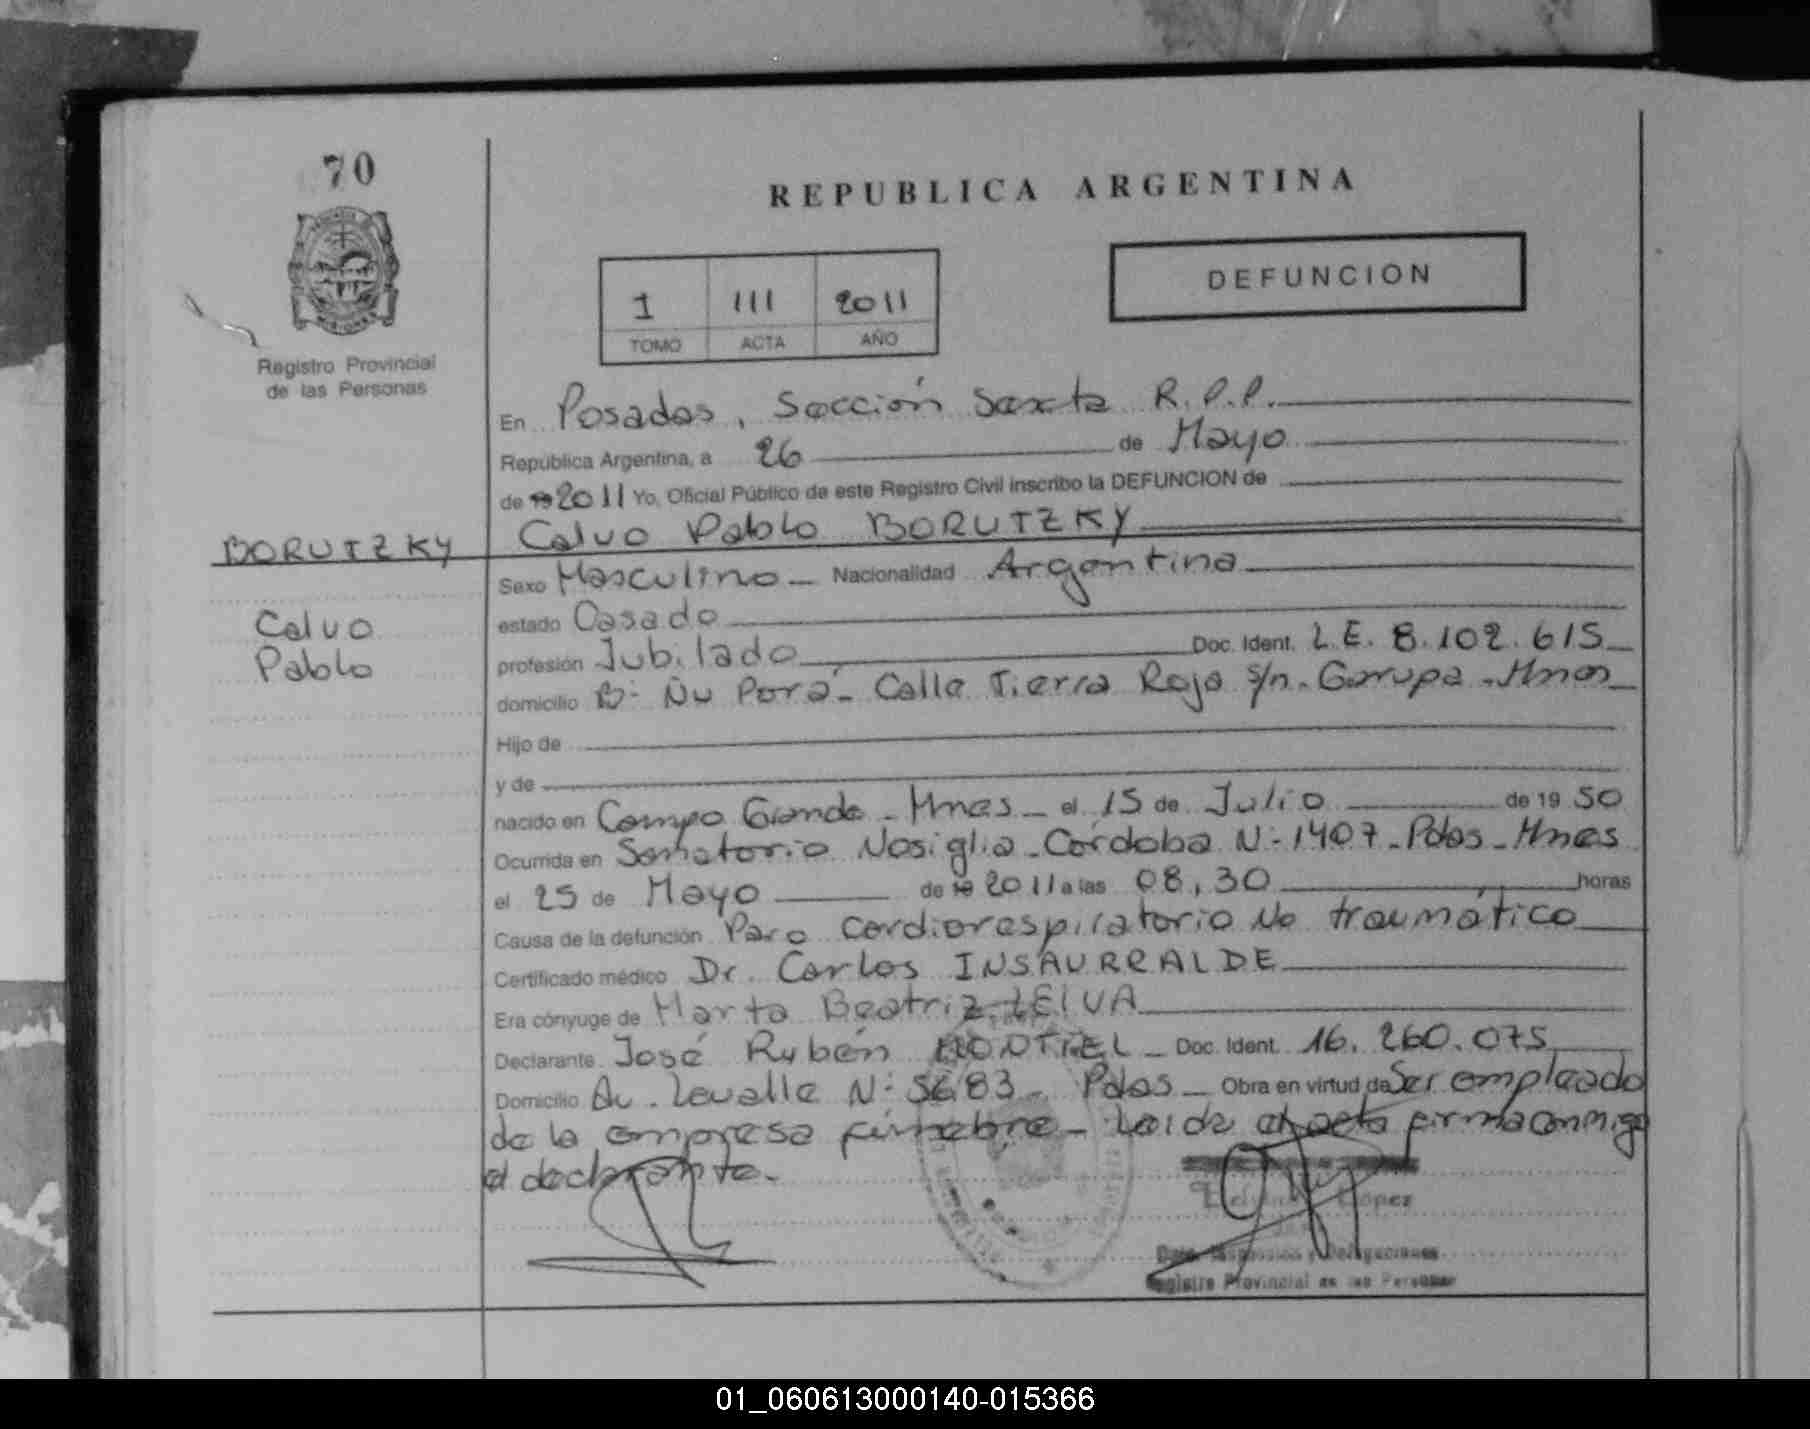 70
REPUBLICA ARGENTINA
DEFUNCION
1 111 2011
TOMO ACTA AÑO
Registro Provincial
de las Personas
En Posadas, Sección Sexta R.P.P.
República Argentina, a 26 de Mayo
de 19 2011 Yo, Oficial Público de este Registro Civil inscribo la DEFUNCION de
Calvo Pablo BORUTZKY
BORUTZKY
Calvo
Pablo
Sexo Masculino Nacionalidad Argentina
estado Casado
profesión Jubilado Doc. Ident. L.E. 8.102.615
domicilio B: Ñu Porá - Calle Tierra Roja s/n - Garupa - Mnes
Hijo de
y de
nacido en Campo Grande - Mnes - el 15 de Julio de 19 50
Ocurrida en Sanatorio Nosiglia - Córdoba N: 1407 - Pdas - Mnes
el 25 de Mayo de 19 2011 a las 08,30 horas
Causa de la defunción Paro Cardiorespiratorio No traumático
Certificado médico Dr. Carlos INSAURRALDE
Era cónyuge de Marta Beatriz LEIVA
Declarante José Rubén MONTIEL - Doc. Ident. 16.260.075
Domicilio Av. Lavalle N: 5683 - Pdas - Obra en virtud de Ser empleado
de la empresa fúnebre - Leida el acta firma conmigo
el declarante.
López
Registro Provincial de las Personas
01_060613000140-015366